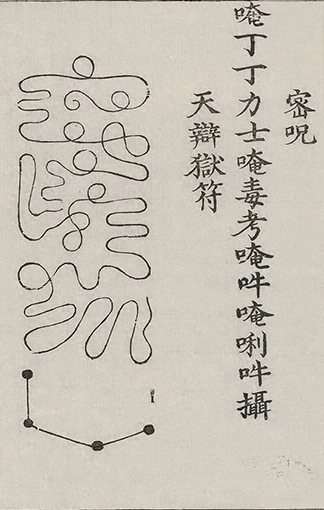 密呪
唵丁丁力士唵毒考唵吽唵唎吽攝
天辯獄符